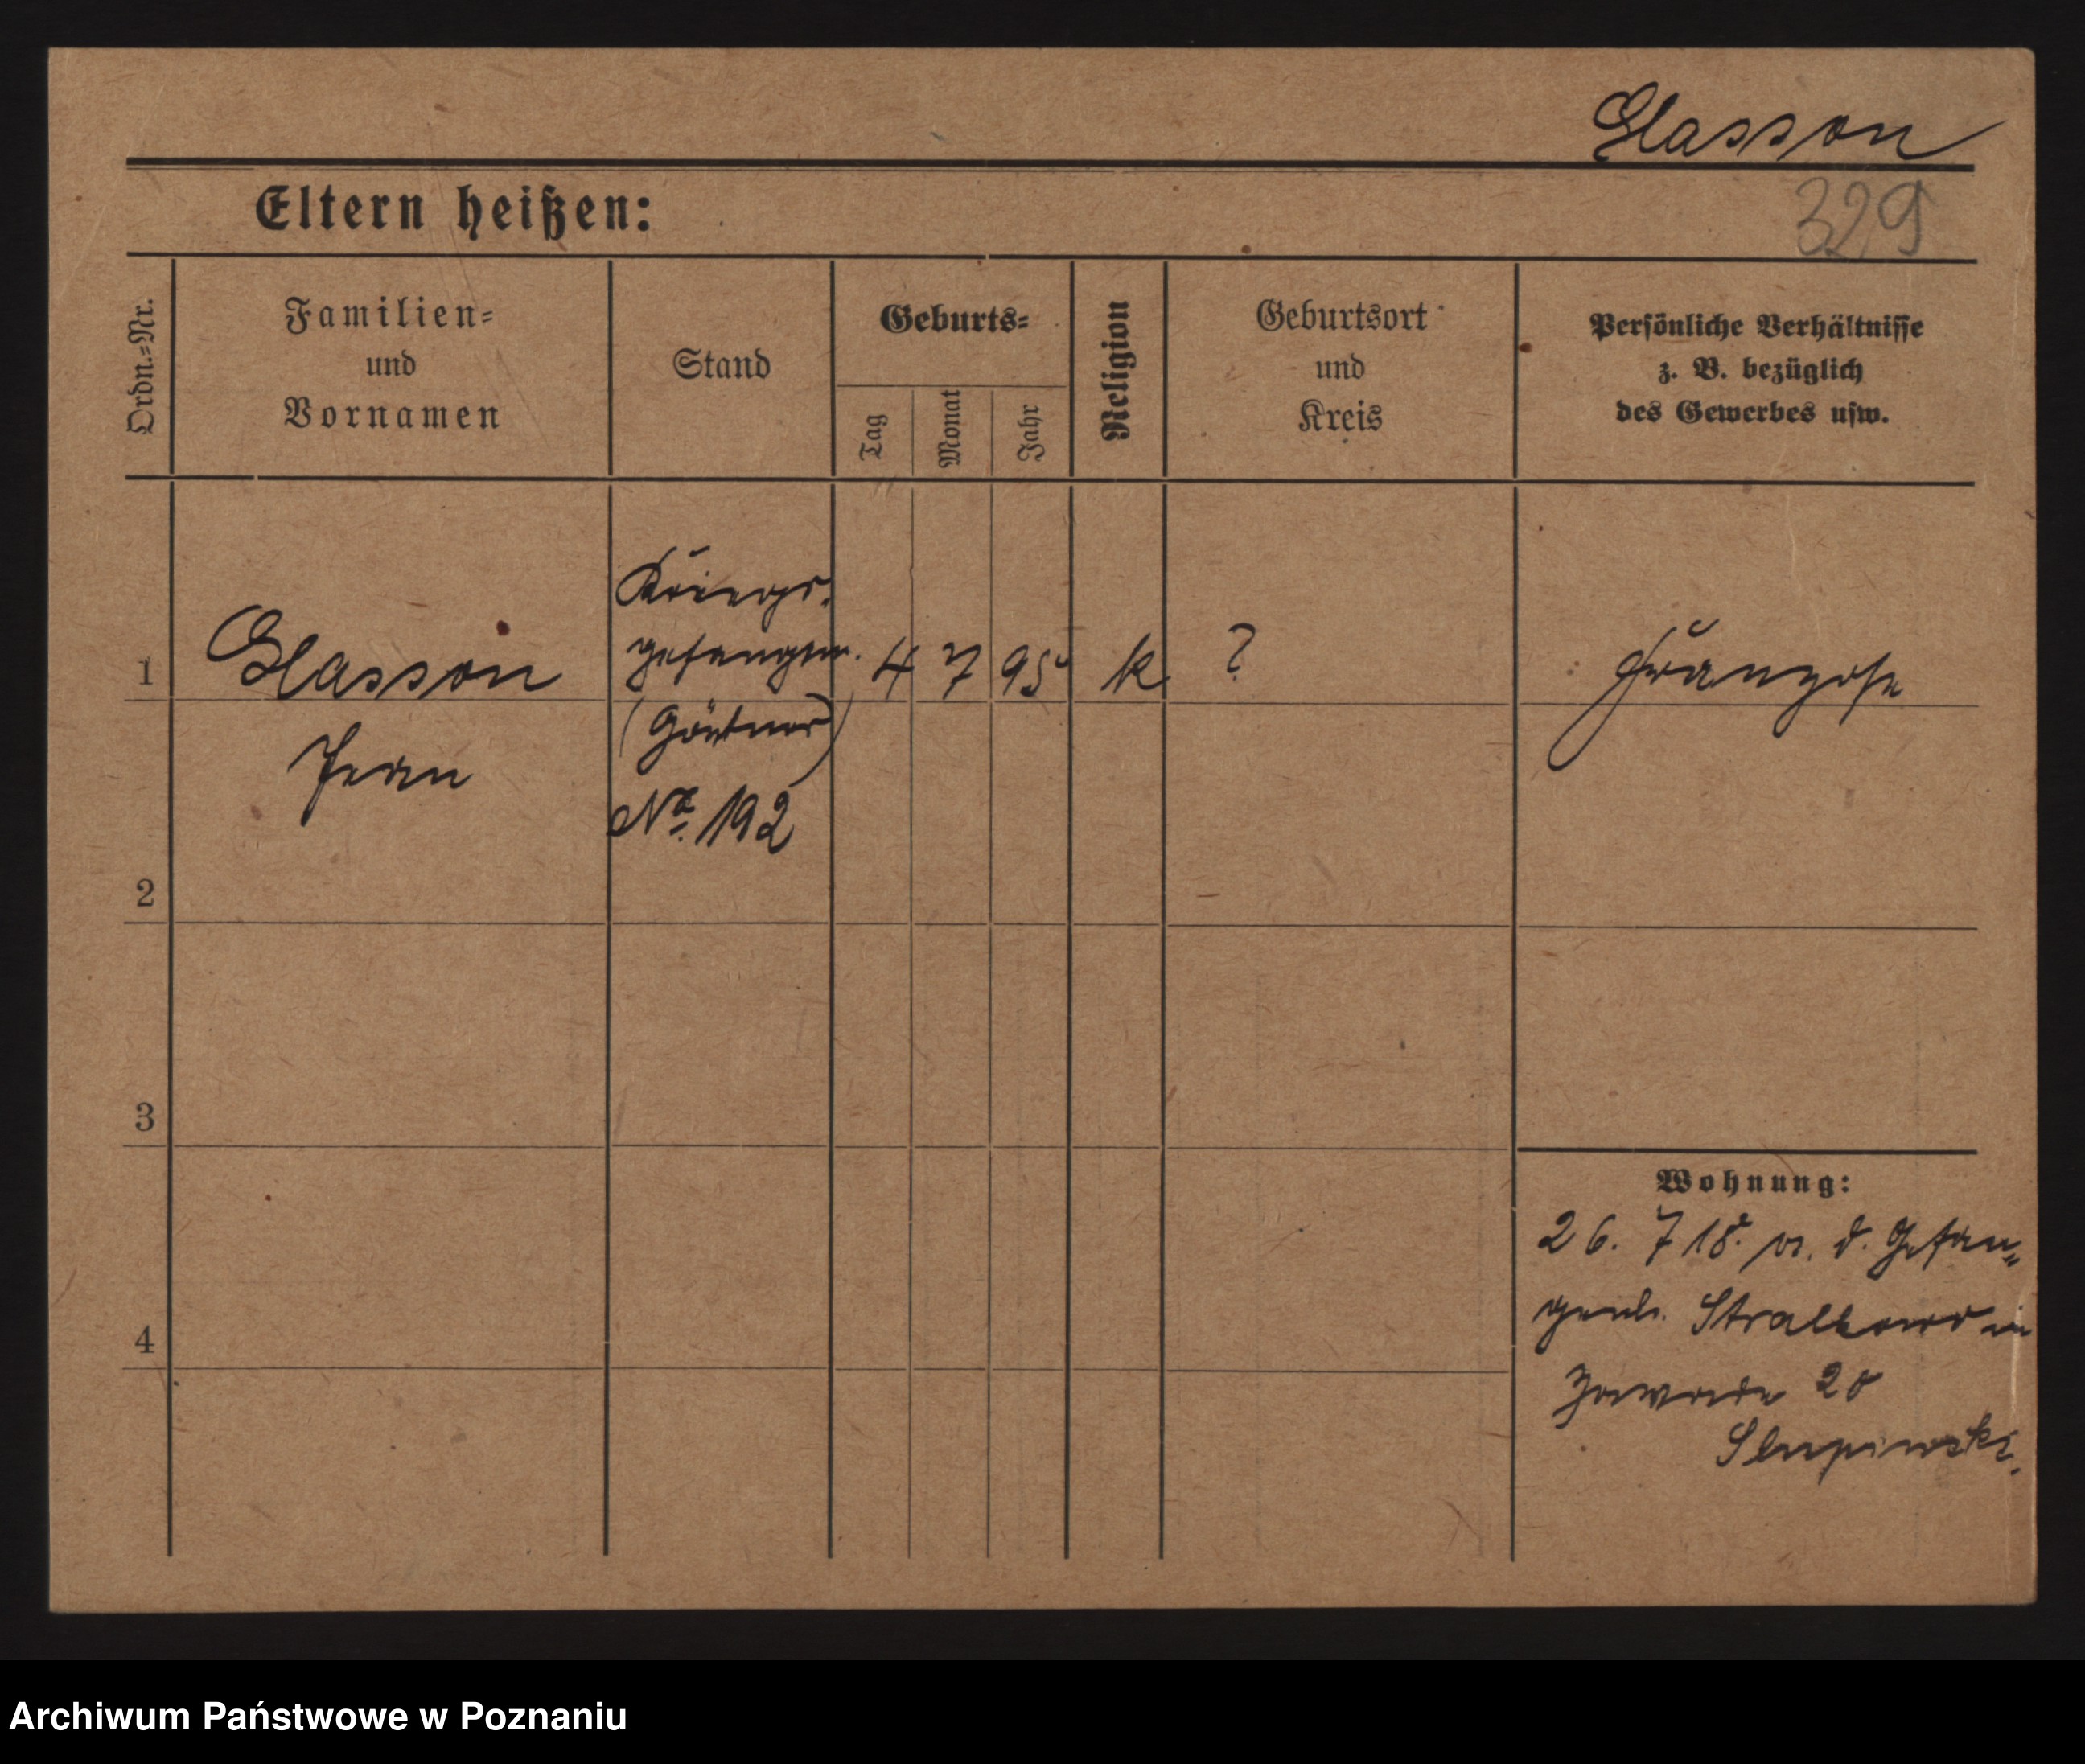 Glasson
329
Eltern heißen:
Ordn.=Nr.
Familien=
und
Vornamen
Stand
Geburts=
Tag
Monat
Jahr
Religion
Geburtsort
und
Kreis
Persönliche Verhältnisse
z. B. bezüglich
des Gewerbes usw.
1
Glasson
Jean
Kriegs.
gefangen.
(Gärtner)
No. 192
4 7 95 k ?
Franzose
2
3
4
Wohnung:
26. 7 18. v. d. Gefan=
genl. Stralkowo in
Zawade 20
Slupinski.
Archiwum Państwowe w Poznaniu